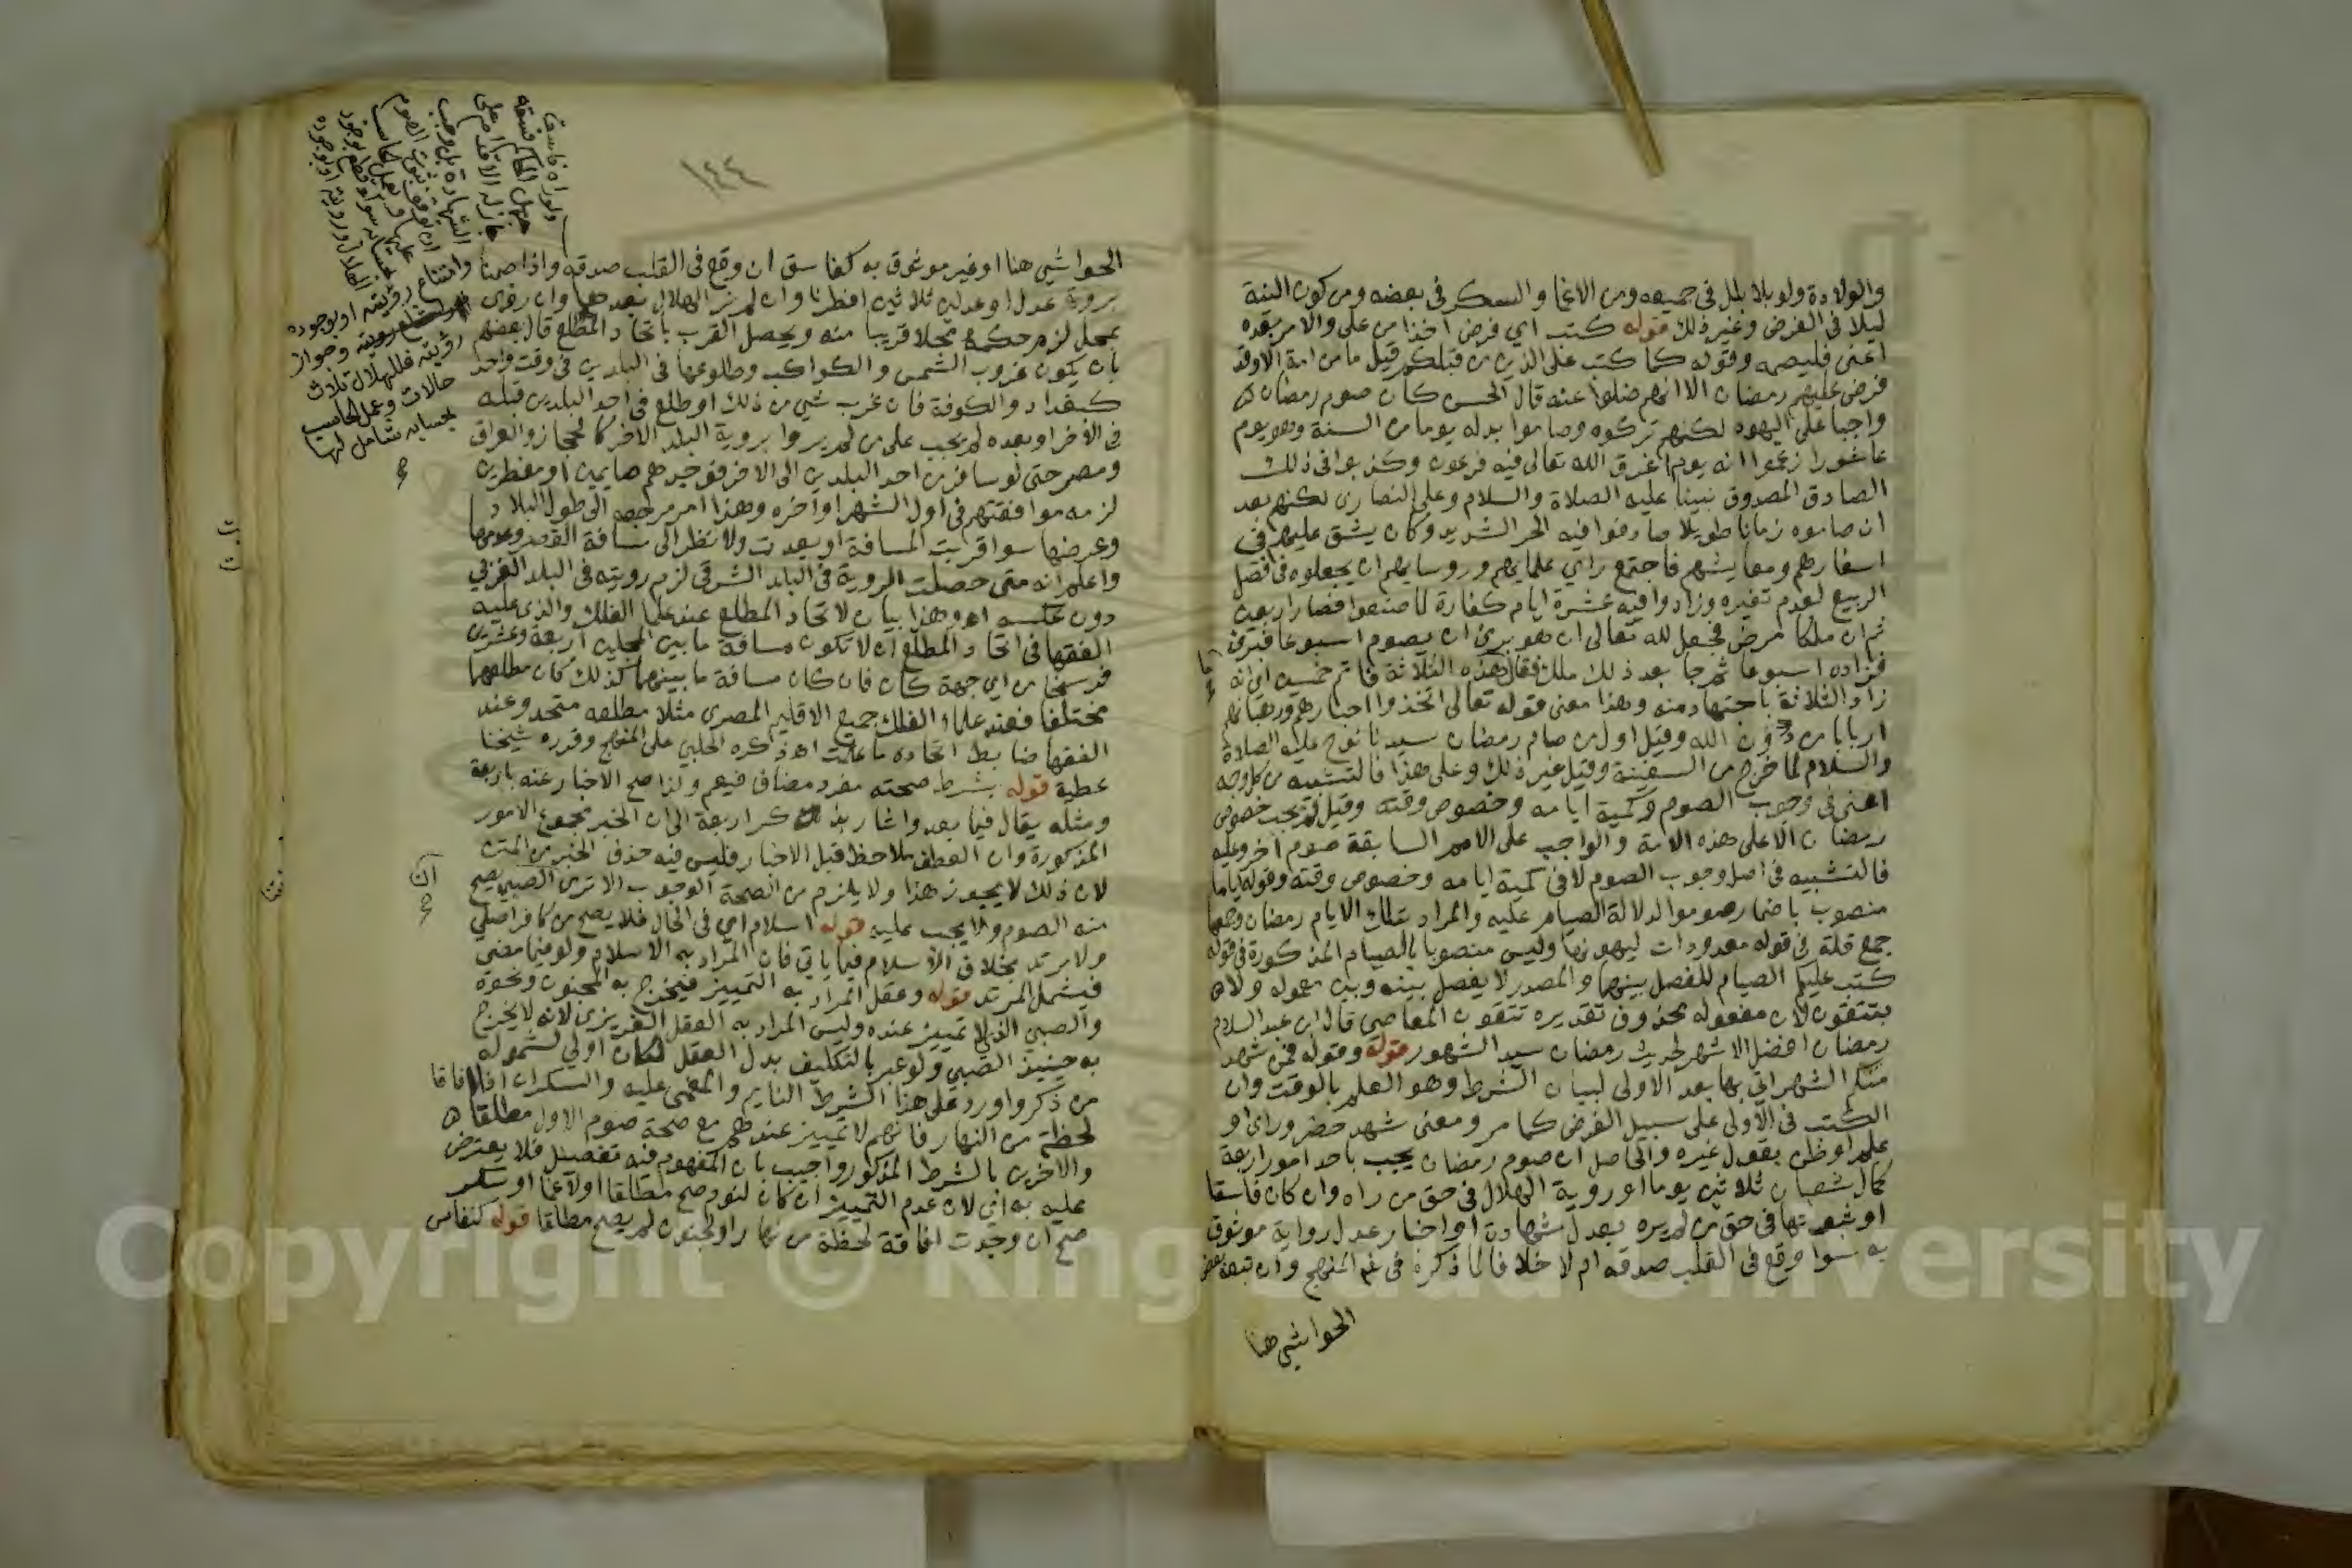 والولادة ولو بلا بلل في جميعه ومن الاغما والسكر في بعضه ومن كون النية
ليلا في الفرض وغير ذلك قوله كتب اي فرض اخذا من على والامر بعده
اعني فليصمه وقوله كما كتب على الذين من قبلكم قيل ما من امة الا وقد
فرض عليهم رمضان الا انهم ضلوا عنه قال الحسن كان صوم رمضان
واجبا على اليهود لكنهم تركوه وصاموا بدله يوما من السنة وهو يوم
عاشورا زعموا انه يوم اغرق الله تعالى فيه فرعون وكذبوا في ذلك
الصادق المصدوق نبينا عليه الصلاة والسلام وعلى النصارى لكنهم بعد
ان صاموه زمانا طويلا صادفوا فيه الحر الشديد وكان يشق عليهم في
اسفارهم ومعايشهم فاجتمع راي علمايهم وروسايهم ان يجعلوه في فصل
الربيع لعدم تغيره وزادوا فيه عشرة ايام كفارة لما صنعوا فصار اربعين
ثم ان ملكا مرض فجعل لله تعالى ان هو برئ ان يصوم اسبوعا فبرئ
فزاده اسبوعا ثم جا بعد ذلك ملك فقال ما هذه الثلاثة فاتم خمسين اي انه
زاد الثلاثة باجتهاد منه وهذا معنى قوله تعالى اتخذوا احبارهم ورهبانهم
اربابا من دون الله وقيل اول من صام رمضان سيدنا نوح عليه الصلاة
والسلام لما خرج من السفينة وقيل غير ذلك وعلى هذا فالتشبيه من كل وجه
اعني في وجوب الصوم وكمية ايامه وخصوص وقته وقيل لم يجب خصوص
رمضان الا على هذه الامة والواجب على الامم السابقة صوم اخر وعليه
فالتشبيه في اصل وجوب الصوم لا في كمية ايامه وخصوص وقته وقوله اياما
منصوب باضمار صوموا لدلالة الصيام عليه والمراد بتلك الايام رمضان وجمعها
جمع قلة في قوله معدودات ليهونها وليس منصوبا بالصيام المذكورة في قوله
كتب عليكم الصيام للفصل بينهما والمصدر لا يفصل بينه وبين معموله ولا
بتتقون لان مفعوله محذوف تقديره تتقون المعاصي قال ابن عبد السلام
رمضان افضل الاشهر لحديث رمضان سيد الشهور قوله وقوله فمن شهد
منكم الشهر اتى بها بعد الاولى لبيان الشرط وهو العلم بالوقت وان
الكتب في الاولى على سبيل الفرض كما مر ومعنى شهد حضر وراى او
علم او ظن بقول غيره والحاصل ان صوم رمضان يجب باحد امور اربعة
كمال شعبان ثلاثين يوما او روية الهلال في حق من راه وان كان فاسقا
او ثبوتها في حق من لم يره بعدل شهادة او اخبار عدل رواية موثوق
به سوا وقع في القلب صدقه ام لا خلافا لما ذكره في المنهج وان تبعه بعض
الحواشي هنا
١٤٤
الحواشي هنا او غير موثوق به كفاسق ان وقع في القلب صدقه واذا صمنا
بروية عدل او عدلين ثلاثين افطرنا وان لم نر الهلال بعدها وان رؤى
بمحل لزم حكمه محلا قريبا منه ويحصل القرب باتحاد المطلع قال بعضهم
بان يكون غروب الشمس والكواكب وطلوعها في البلدين في وقت واحد
كبغداد والكوفة فان غرب شي من ذلك او طلع في احد البلدين قبله
في الاخر او بعده لم يجب على من لم يروا بروية البلد الاخر كالحجاز والعراق
ومصر حتى لو سافر من احد البلدين الى الاخر فوجدهم صايمين او مفطرين
لزمه موافقتهم في اول الشهر او اخره وهذا امر مرجعه الى طول البلاد
وعرضها سوا قربت المسافة او بعدت ولا نظر الى مسافة القصر وعدمها
واعلم انه متى حصلت الروية في البلد الشرقي لزم رويته في البلد الغربي
دون عكسه اه وهذا بيان لاتحاد المطلع عند علما الفلك والذي عليه
الفقها في اتحاد المطلع ان لا تكون مسافة ما بين المحلين اربعة وعشرين
فرسخا من اي جهة كان فان كان مسافة ما بينهما كذلك كان مطلعهما
مختلفا فعند علماء الفلك جميع الاقليم المصري مثلا مطلعه متحد وعند
الفقها ضابط اتحاده ما علمت اه ذكره الحلبي على المنهج وقرره شيخنا
عطية قوله بشرط صحته مفرد مضاف فيعم ولذا صح الاخبار عنه باربعة
ومثله يقال فيما بعد واشار بذكر اربعة الى ان الخبر مجموع الامور
المذكورة وان العطف ملاحظ قبل الاخبار فليس فيه حذف الخبر من المتن
لان ذلك لا يجوز هذا ولا يلزم من الصحة الوجوب الا ترى ان الصبي يصح
منه الصوم ولا يجب عليه قوله اسلام اي في الحال فلا يصح من كافر اصلي
ولا مرتد بخلاف الاسلام فيما ياتي فان المراد به الاسلام ولو فيما مضى
فيشمل المرتد قوله وعقل المراد به التمييز فيخرج به المجنون ونحوه
والصبي الذي لا تمييز عنده وليس المراد به العقل الغريزي لانه لا يخرج
به حينيذ الصبي ولو عبر بالتكليف بدل العقل لكان اولى لشموله
من ذكر واورد على هذا الشرط النايم والمغمى عليه والسكران اذا افاقا
لحظة من النهار فانهم لا تمييز عندهم مع صحة صوم الاول مطلقا
والاخرين بالشرط المذكور واجيب بان المفهوم فيه تفصيل فلا يعترض
عليه به اي لان عدم التمييز ان كان لنوم صح مطلقا او لاغما او سكر
صح ان وجدت افاقة لحظة من نهار او لجنون لم يصح مطلقا قوله كنفاس
ولو راه فاسق
جهل الحاكم فسقه
جاز له الاقدام على
الشهادة بل وجب
ان توقف ثبوت الصوم
عليها ويعمل الحاسب
بحسابه سوا قطع بوجود
الهلال ورويته او بوجوده
وامتناع رؤيته او بوجوده
وجواز
رؤيته فللهلال ثلاث
حالات وعمل الحاسب
بحسابه شامل لها